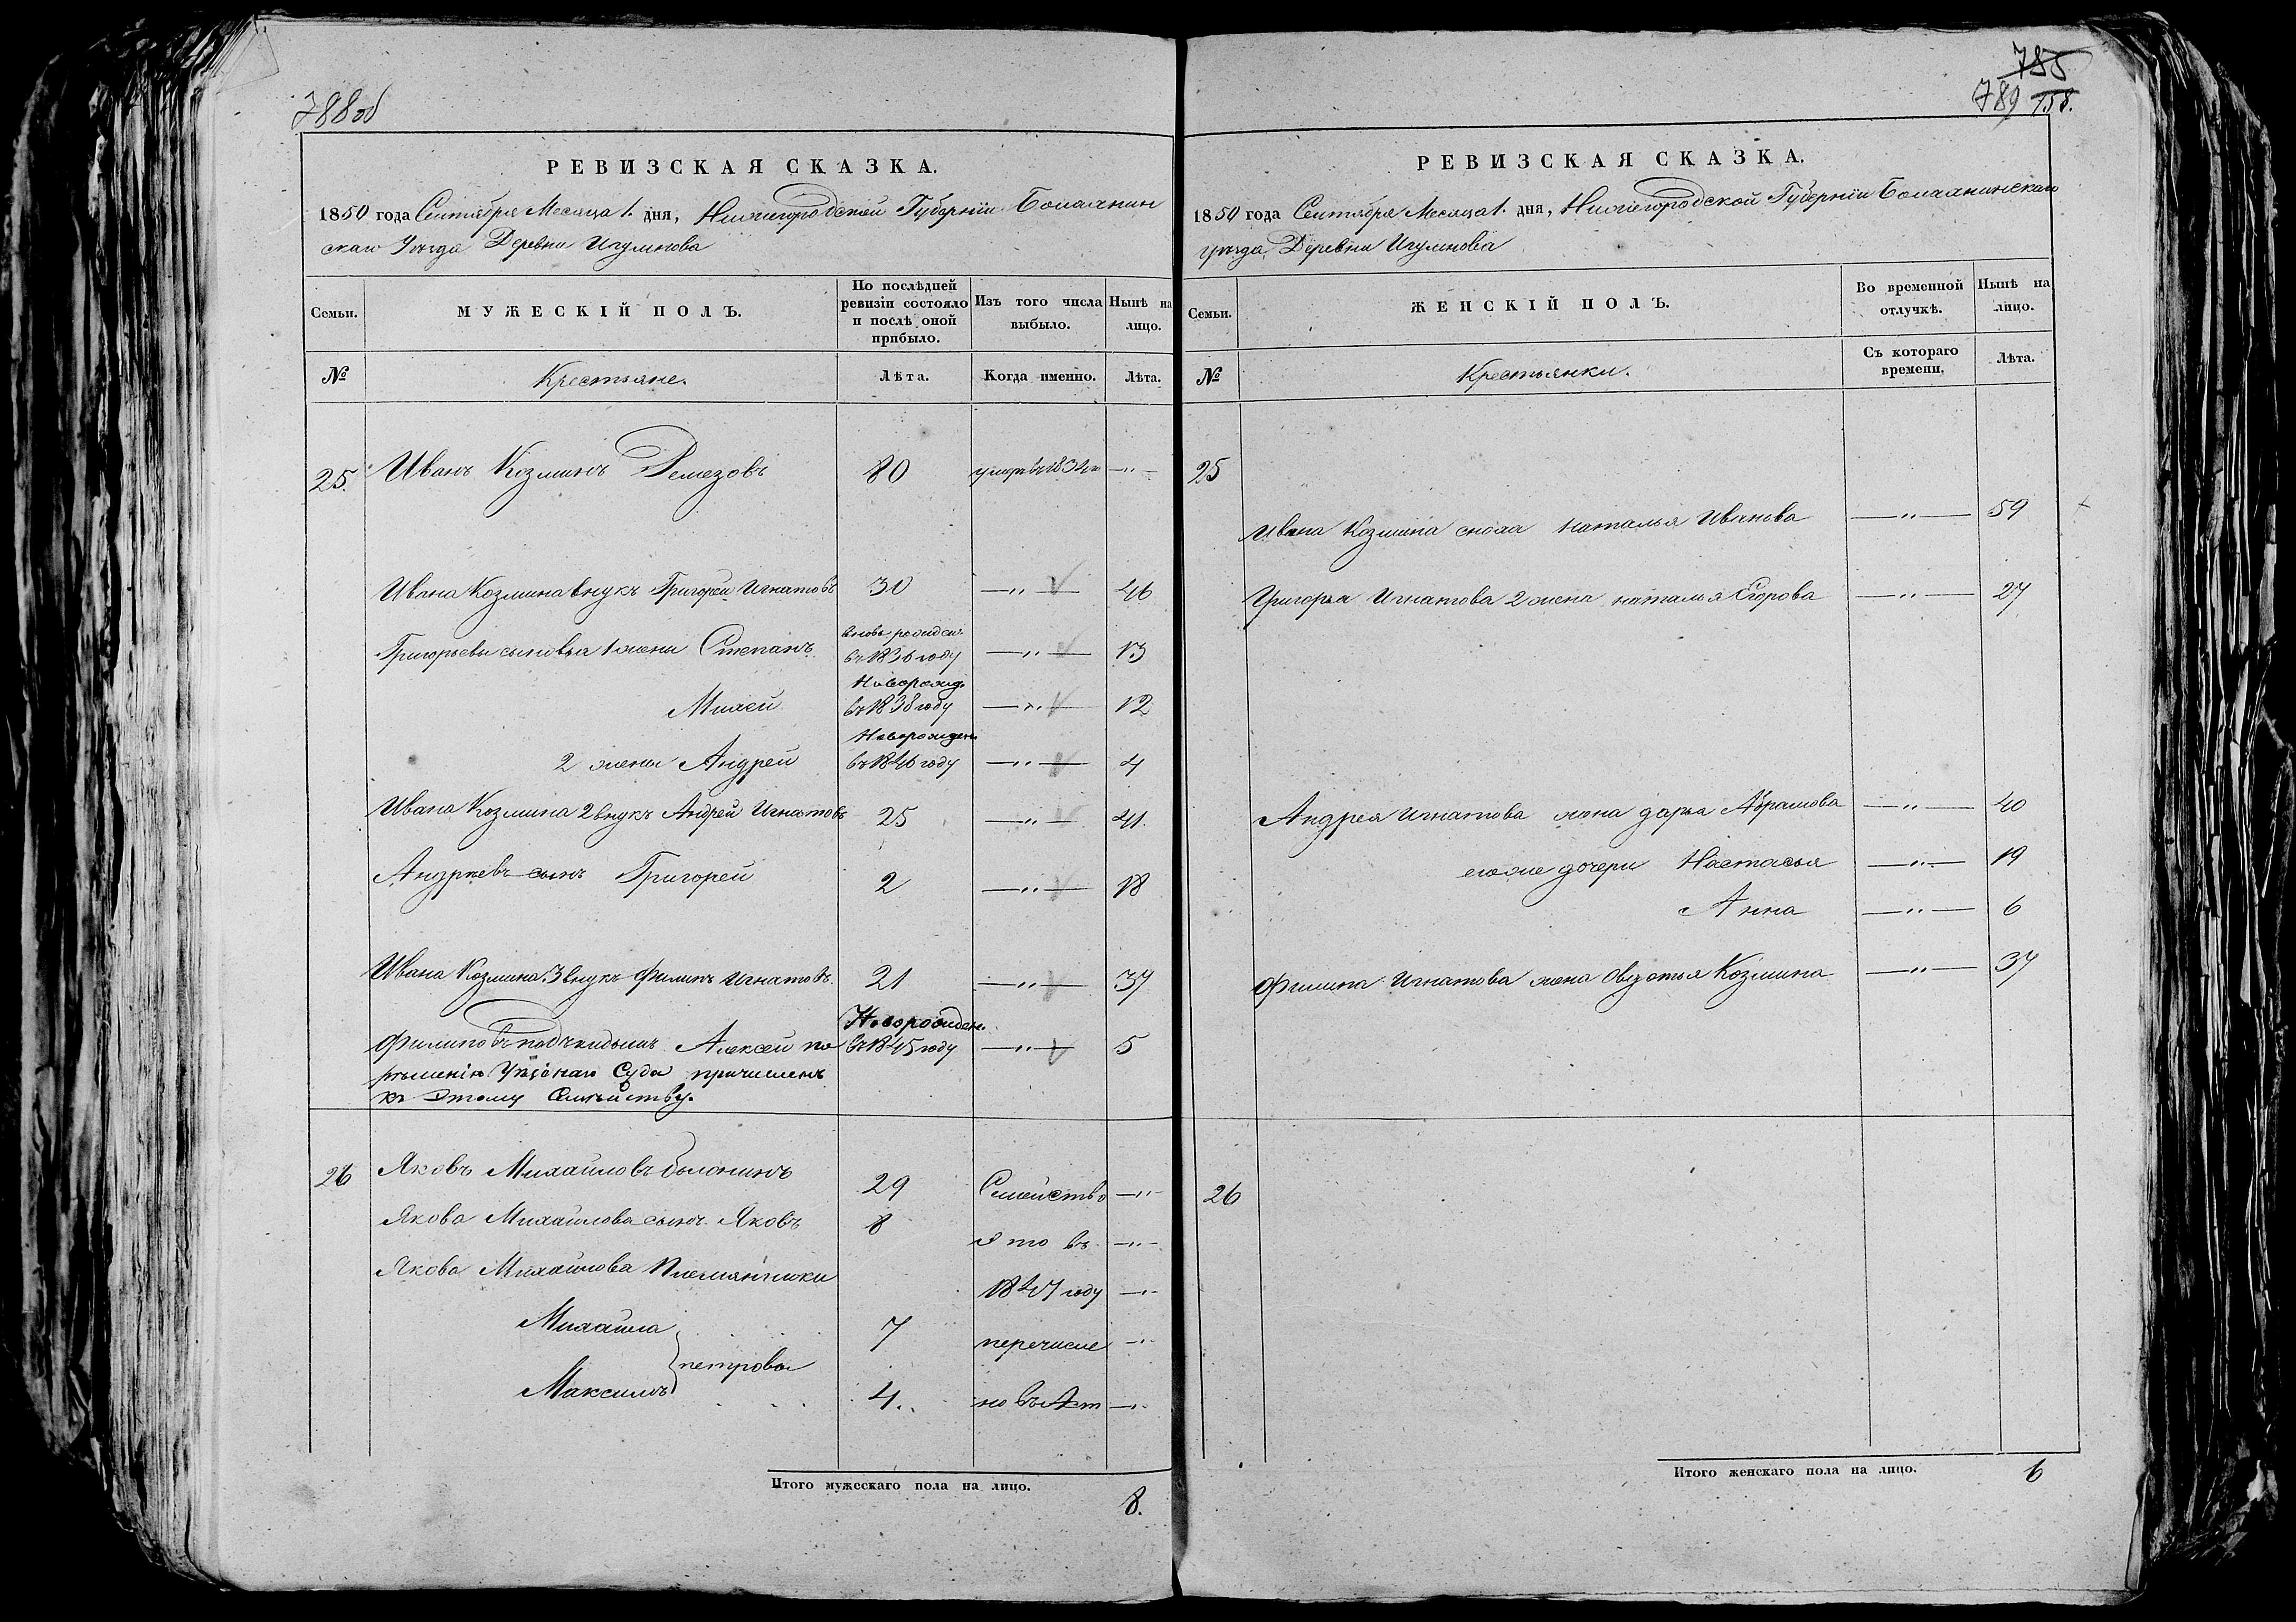 788об
РЕВИЗСКАЯ СКАЗКА.
1850 года Сентября Месяца 1. дня, Нижегородской Губернiи Балахнин
скаго Уезда Деревни Игумнова
Семьи.
МУЖЕСКІЙ ПОЛЪ.
По послѣдней ревизіи состояло и послѣ оной прибыло.
Изъ того числа выбыло.
Нынѣ на лицо.
№
Крестьяне.
Лѣта.
Когда именно.
Лѣта.
25. Иванъ Козминъ Ремезовъ 80 —"—
Ивана Козмина внукъ Григорей Игнатовъ 30 —"— 46
Григорьевы сыновья 1 жены Степанъ вновь рожден. въ 1836 году —"— 13
Михей Новорожд. въ 1838 году —"— 12
2 жены Андрей Новорожден въ 1846 году —"— 4
Ивана Козмина 2 внукъ Андрей Игнатовъ 25 —"— 41.
Андреевъ сынъ Григорей 2 —"— 18
Ивана Козмина 3 внукъ Филипъ Игнатовъ 21 —"— 37
Филиповъ подкидышъ Алексей по Новорожден. въ 1845 году —"— 5
решенiю Уезднаго Суда причисленъ
къ Этому Семейству.
26 Яковъ Михайловъ 29 Семейство —"—
Якова Михайлова сынъ Яковъ 8 это въ —"—
Якова Михайлова Племянники 1847 году —"—
Михайла 7 перечисле —"—
петровы
Максимъ 4. но въ Аст —"—
Итого мужескаго пола на лицо.
8.
785
789 158.
РЕВИЗСКАЯ СКАЗКА.
1850 года Сентября Месяца 1. дня, Нижегородской Губернiи Балахнинскаго
уезда Деревни Игумнова
Семьи.
ЖЕНСКІЙ ПОЛЪ.
Во временной отлучкѣ.
Нынѣ на лицо.
№
Крестьянки.
Съ котораго времени.
Лѣта.
25
Ивана Козмина сноха Наталья Иванова —"— 59
Григорья Игнатова 2 жена наталья Егорова —"— 27
Андрея Игнатова жена дарья Абрамова —"— 40
его же дочери Настасья —"— 19
Анна —"— 6
Филипа Игнатова жена Овдотья Козмина —"— 37
26
Итого женскаго пола на лицо.
6